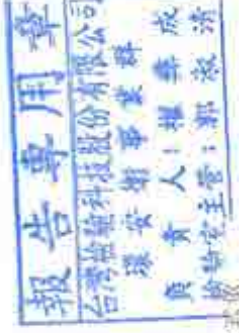 報告專用章
台灣檢驗科技股份有限公司
環安衛事業群
負責人：楊
檢驗室主管：郭淑清